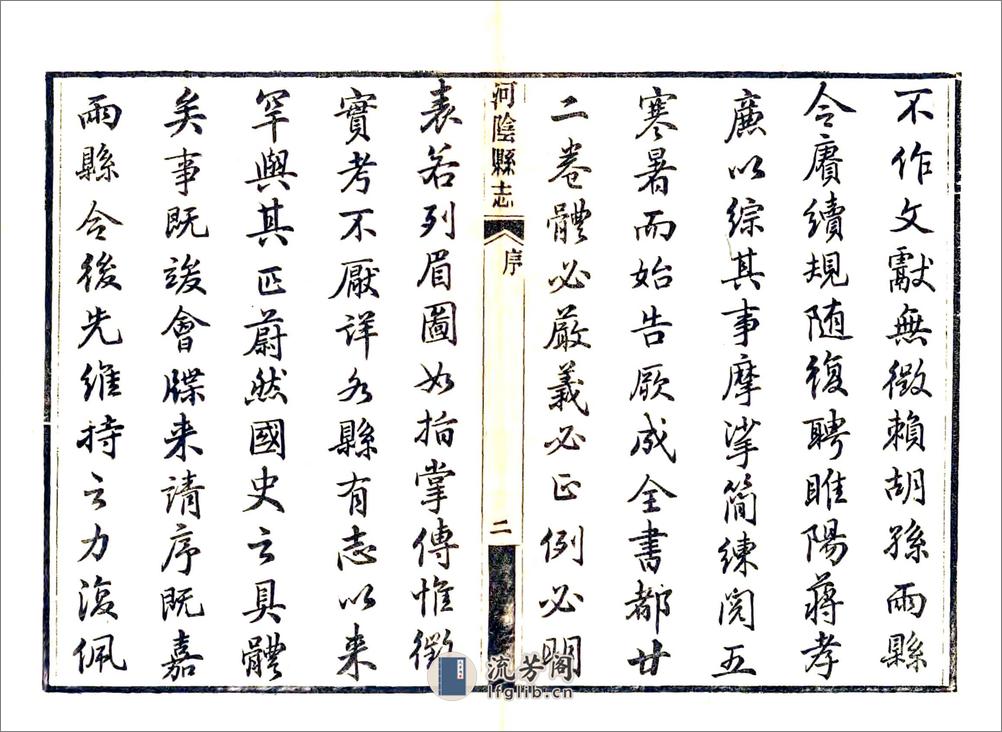 不作文獻無徵賴胡孫兩縣
令賡續規隨復聘睢陽蔣孝
廉以綜其事摩挲簡練閱五
寒暑而始告厥成全書都廿
二卷體必嚴義必正例必明
河陰縣志 序 二
表若列眉圖如指掌傳惟徵
實考不厭詳各縣有志以来
罕與其匹蔚然國史之具體
矣事既竣會牒来請序既嘉
兩縣令後先維持之力復佩
流芳阁
lfglib.cn